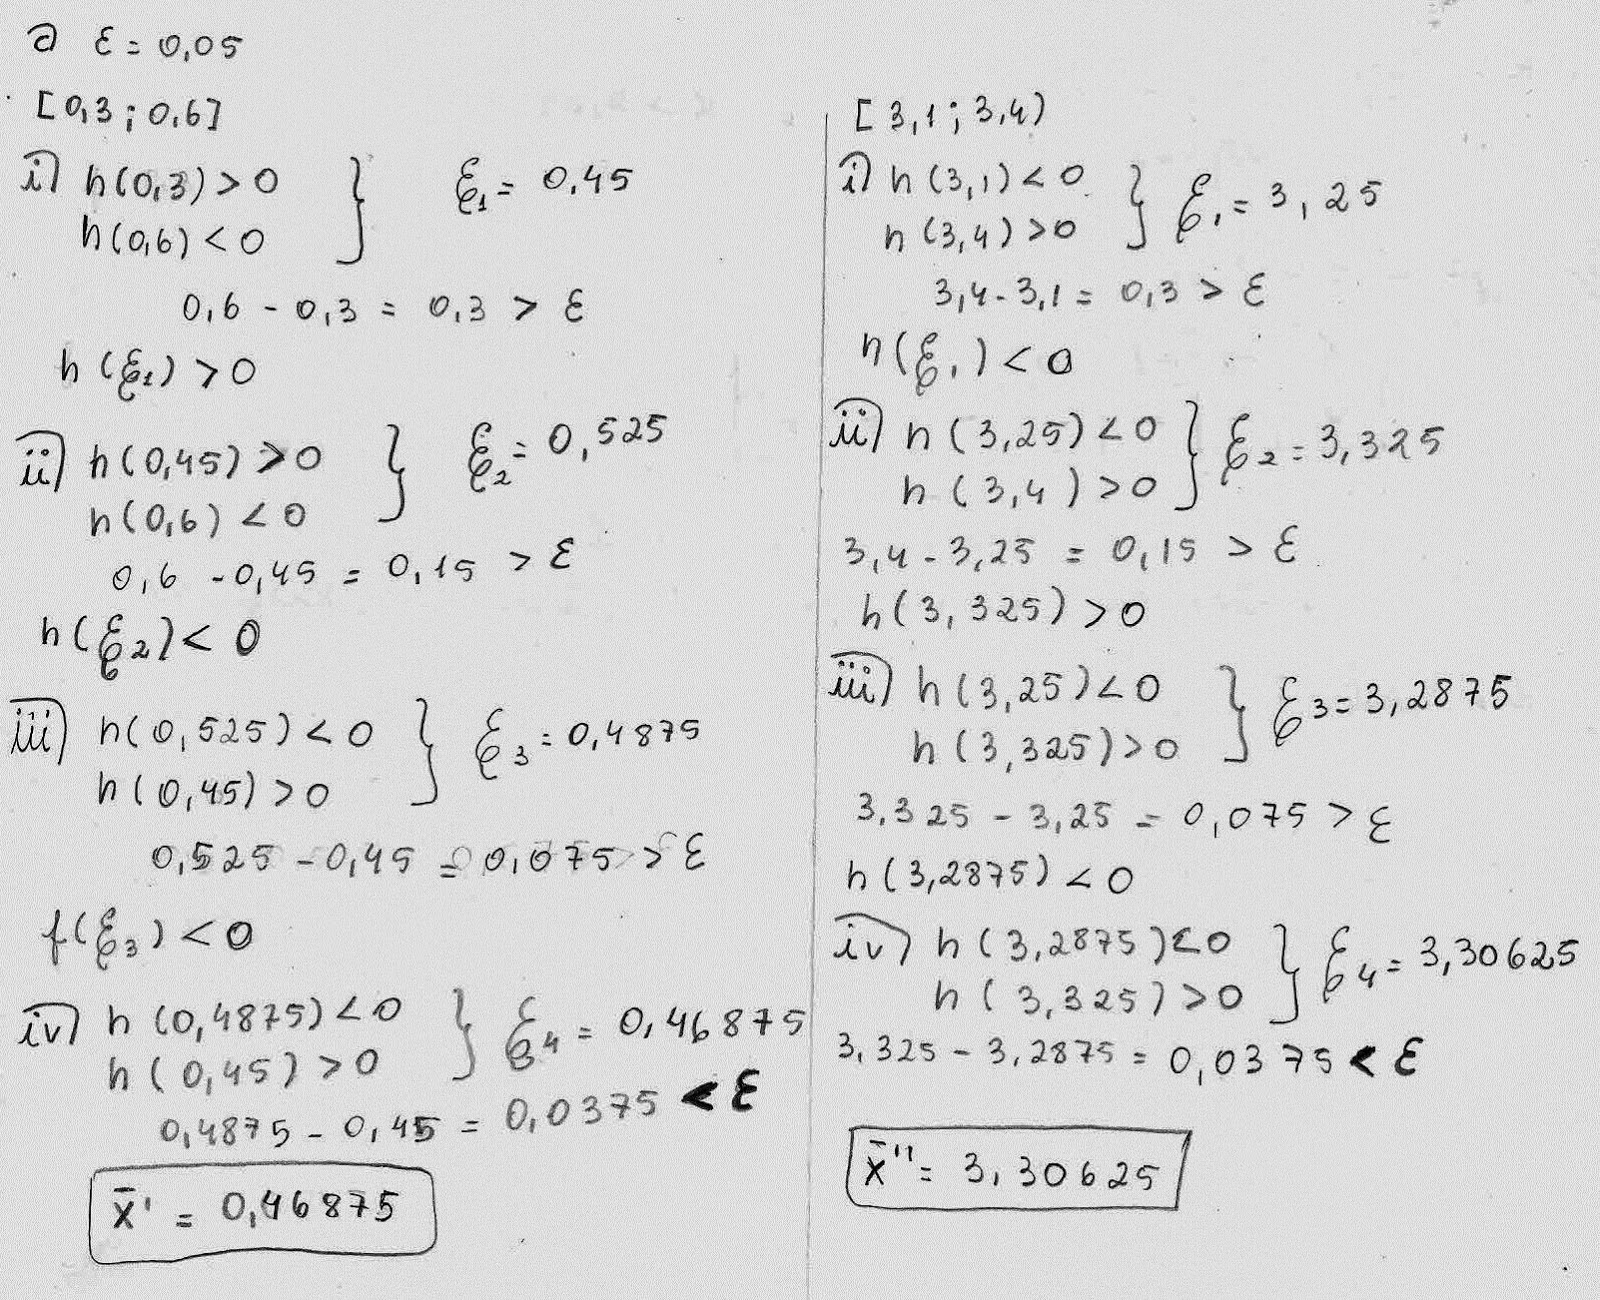 a ε = 0,05
[0,3 ; 0,6]
i) h(0,3) > 0
h(0,6) < 0 } ξ₁ = 0,45
0,6 - 0,3 = 0,3 > ε
h(ξ₁) > 0
ii) h(0,45) > 0
h(0,6) < 0 } ξ₂ = 0,525
0,6 - 0,45 = 0,15 > ε
h(ξ₂) < 0
iii) h(0,525) < 0
h(0,45) > 0 } ξ₃ = 0,4875
0,525 - 0,45 = 0,075 > ε
f(ξ₃) < 0
iv) h(0,4875) < 0
h(0,45) > 0 } ξ₄ = 0,46875
0,4875 - 0,45 = 0,0375 < ε
x̄' = 0,46875
[3,1 ; 3,4)
i) h(3,1) < 0
h(3,4) > 0 } ξ₁ = 3,25
3,4 - 3,1 = 0,3 > ε
h(ξ₁) < 0
ii) h(3,25) < 0
h(3,4) > 0 } ξ₂ = 3,325
3,4 - 3,25 = 0,15 > ε
h(3,325) > 0
iii) h(3,25) < 0
h(3,325) > 0 } ξ₃ = 3,2875
3,325 - 3,25 = 0,075 > ε
h(3,2875) < 0
iv) h(3,2875) < 0
h(3,325) > 0 } ξ₄ = 3,30625
3,325 - 3,2875 = 0,0375 < ε
x̄'' = 3,30625